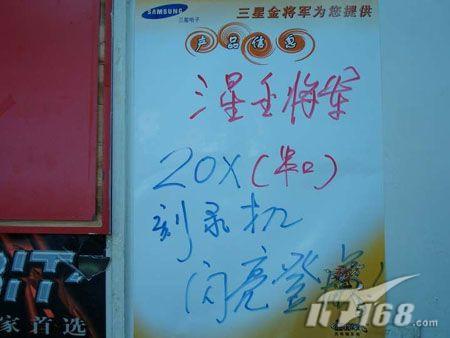 SAMSUNG
三星电子
三星金将军为您提供
产品信息
三星金将军
20X(串口)
刻录机
闪亮登场!
家首选
IT168.com